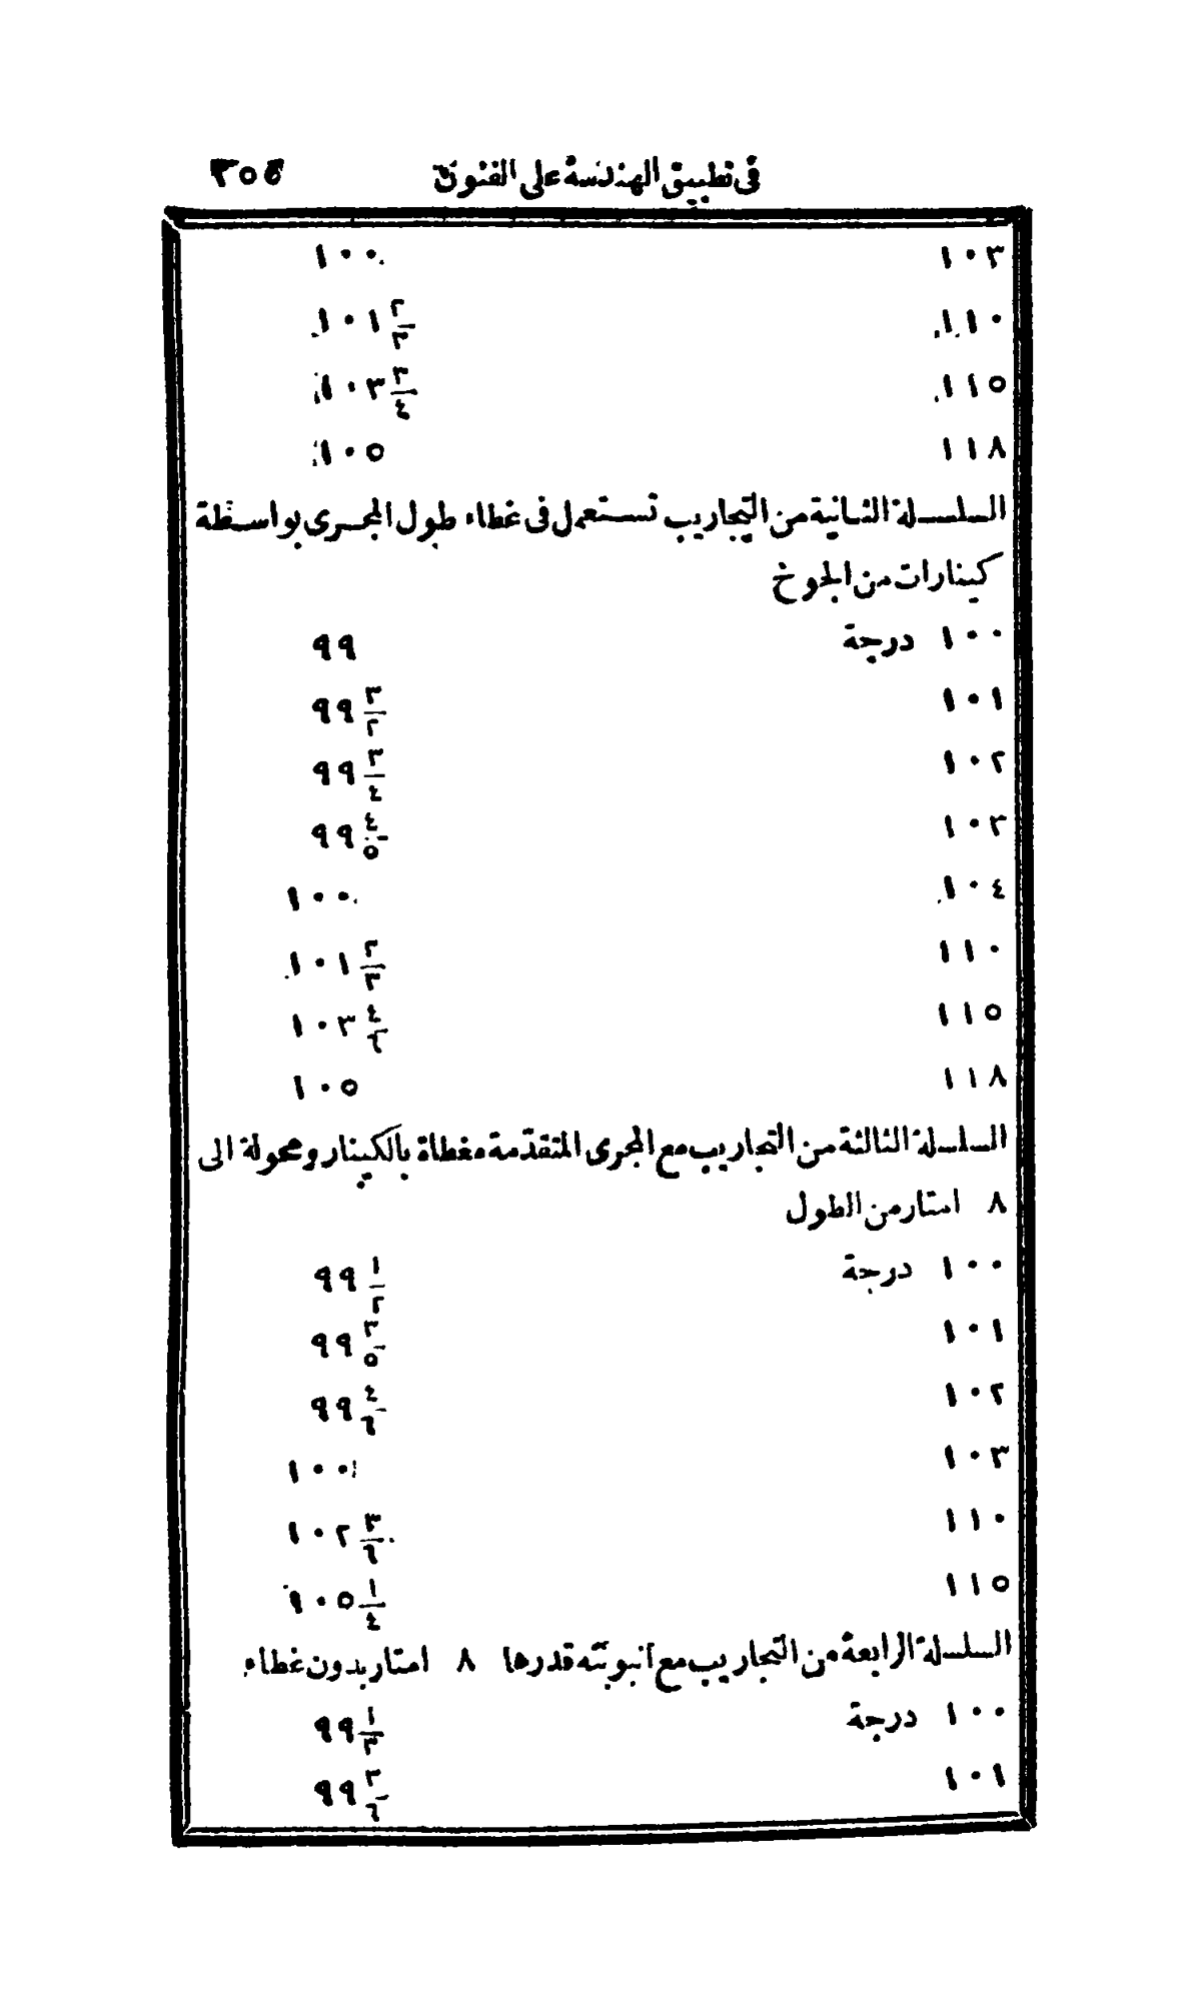 في تطبيق الهندسة على الفنون ٣٥٤
١٠٣ ١٠٠
١١٠ ١٠١ ٢/٣
١١٥ ١٠٣ ٣/٤
١١٨ ١٠٥
السلسلة الثانية من التجاريب تستعمل فى غطاء طول المجرى بواسطة
كينارات من الجوخ
١٠٠ درجة ٩٩
١٠١ ٩٩ ٣/٢
١٠٢ ٩٩ ٣/٤
١٠٣ ٩٩ ٤/٥
١٠٤ ١٠٠
١١٠ ١٠١ ٢/٣
١١٥ ١٠٣ ٤/٦
١١٨ ١٠٥
السلسلة الثالثة من التجاريب مع المجرى المتقدّمة مغطاة بالكينار ومحولة الى
٨ امتار من الطول
١٠٠ درجة ٩٩ ١/٢
١٠١ ٩٩ ٣/٥
١٠٢ ٩٩ ٤/٦
١٠٣ ١٠٠
١١٠ ١٠٢ ٣/٦
١١٥ ١٠٥ ١/٤
السلسلة الرابعة من التجاريب مع انبوبته قدرها ٨ امتار بدون غطاء
١٠٠ درجة ٩٩ ١/٣
١٠١ ٩٩ ٣/٦